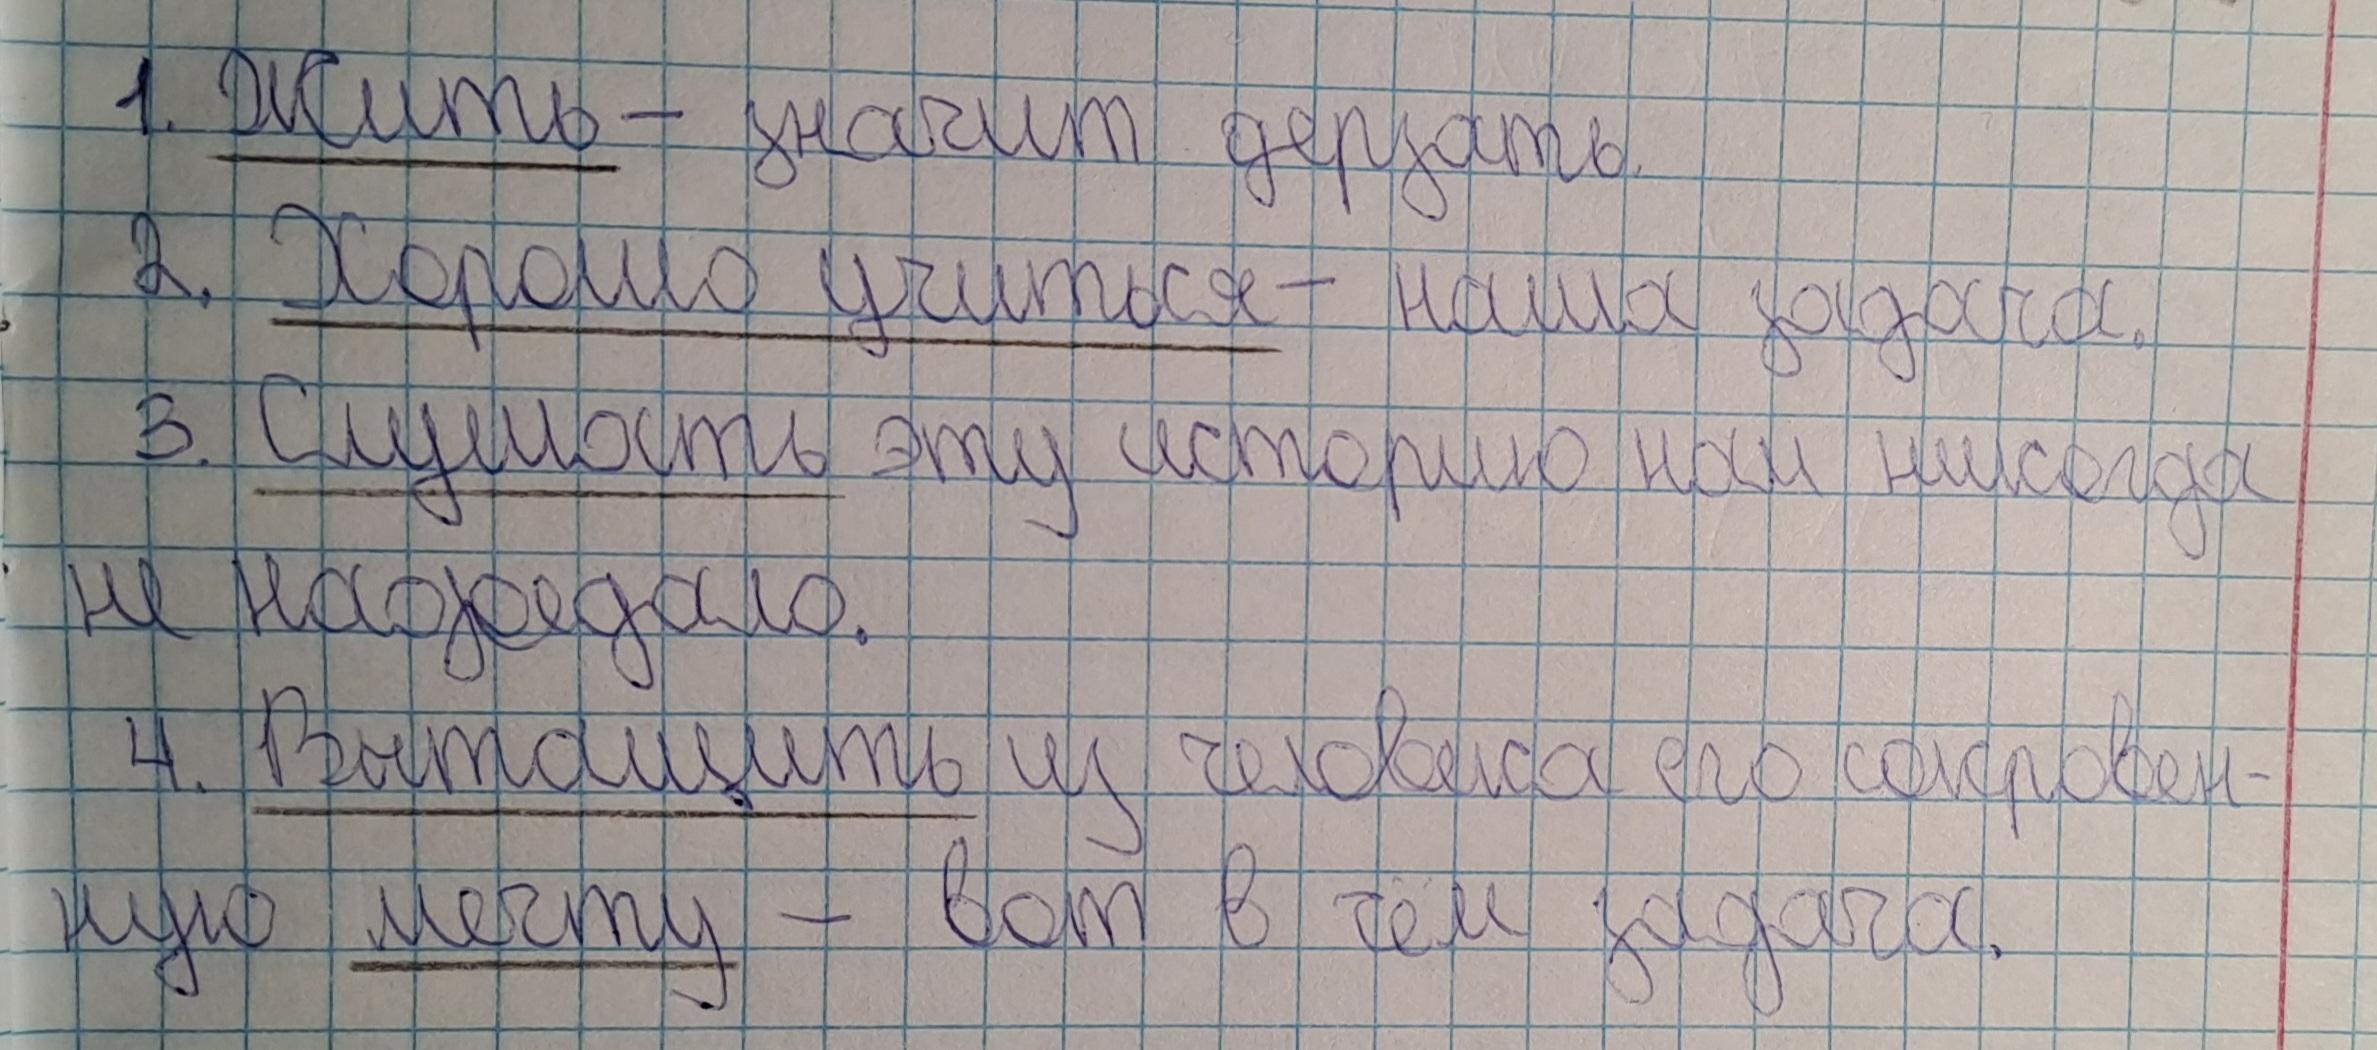 1. Жить – значит дерзать.
2. Хорошо учиться – наша задача.
3. Слушать эту историю нам никогда
не надоедало.
4. Вытащить из человека его сокровен-
ную мечту – вот в чём задача.